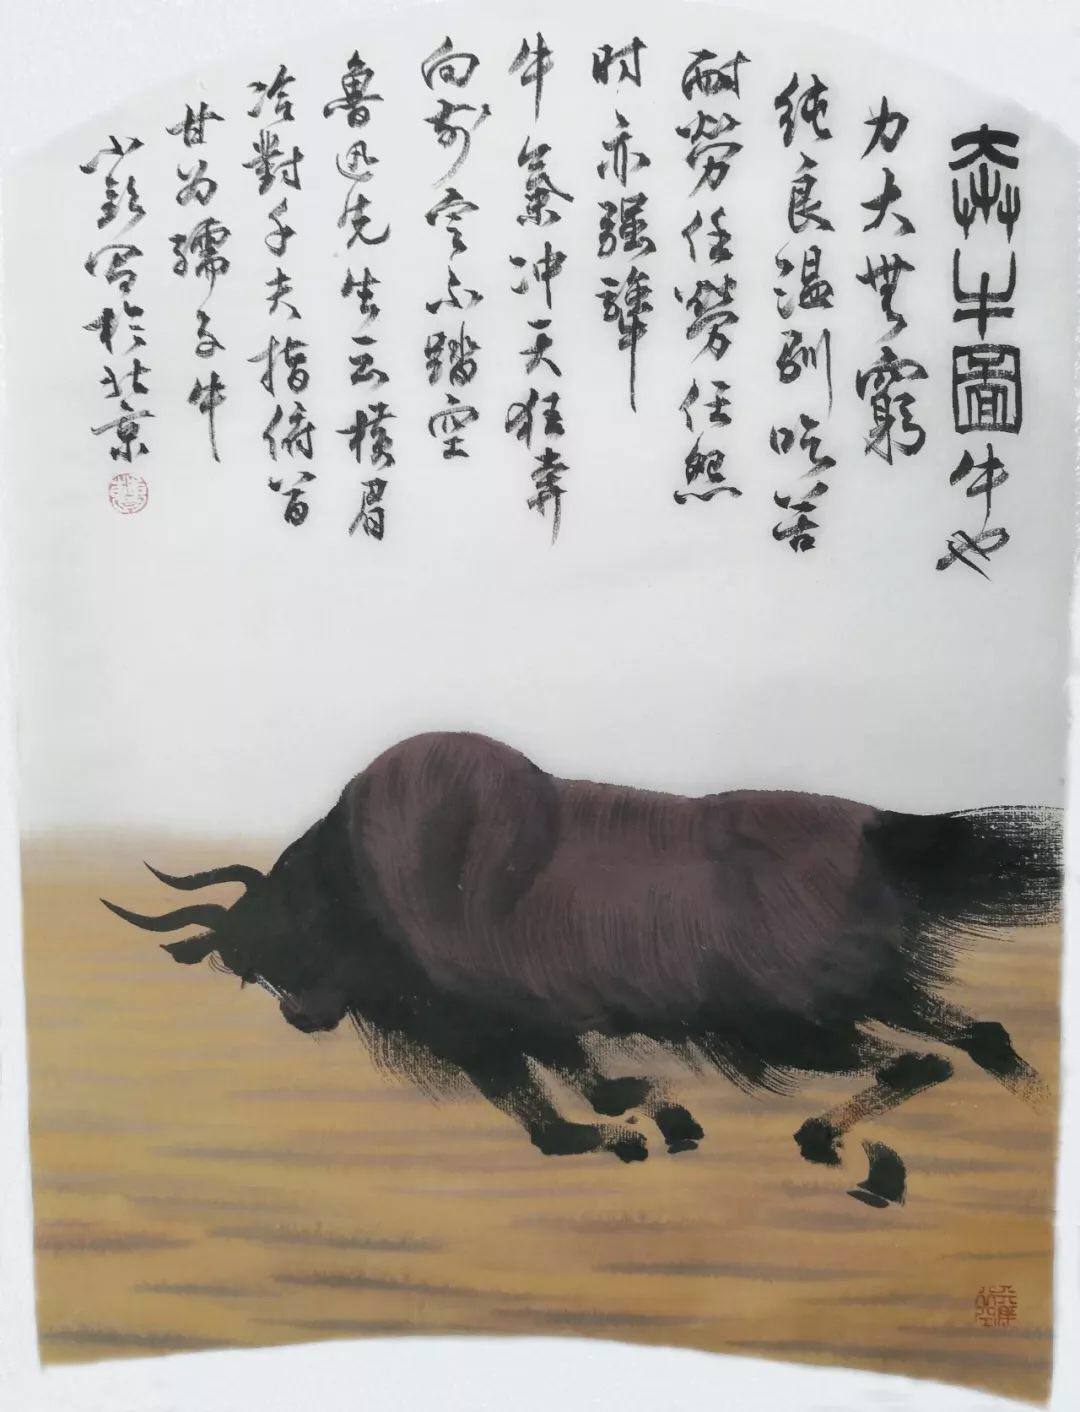 奔牛圖牛也
力大無窮
纯良温馴吃苦
耐勞任勞任怨
时亦强犟
牛氣冲天狂奔
向前不踏空
魯迅先生云横眉
冷對千夫指俯首
甘为孺子牛
小写於北京